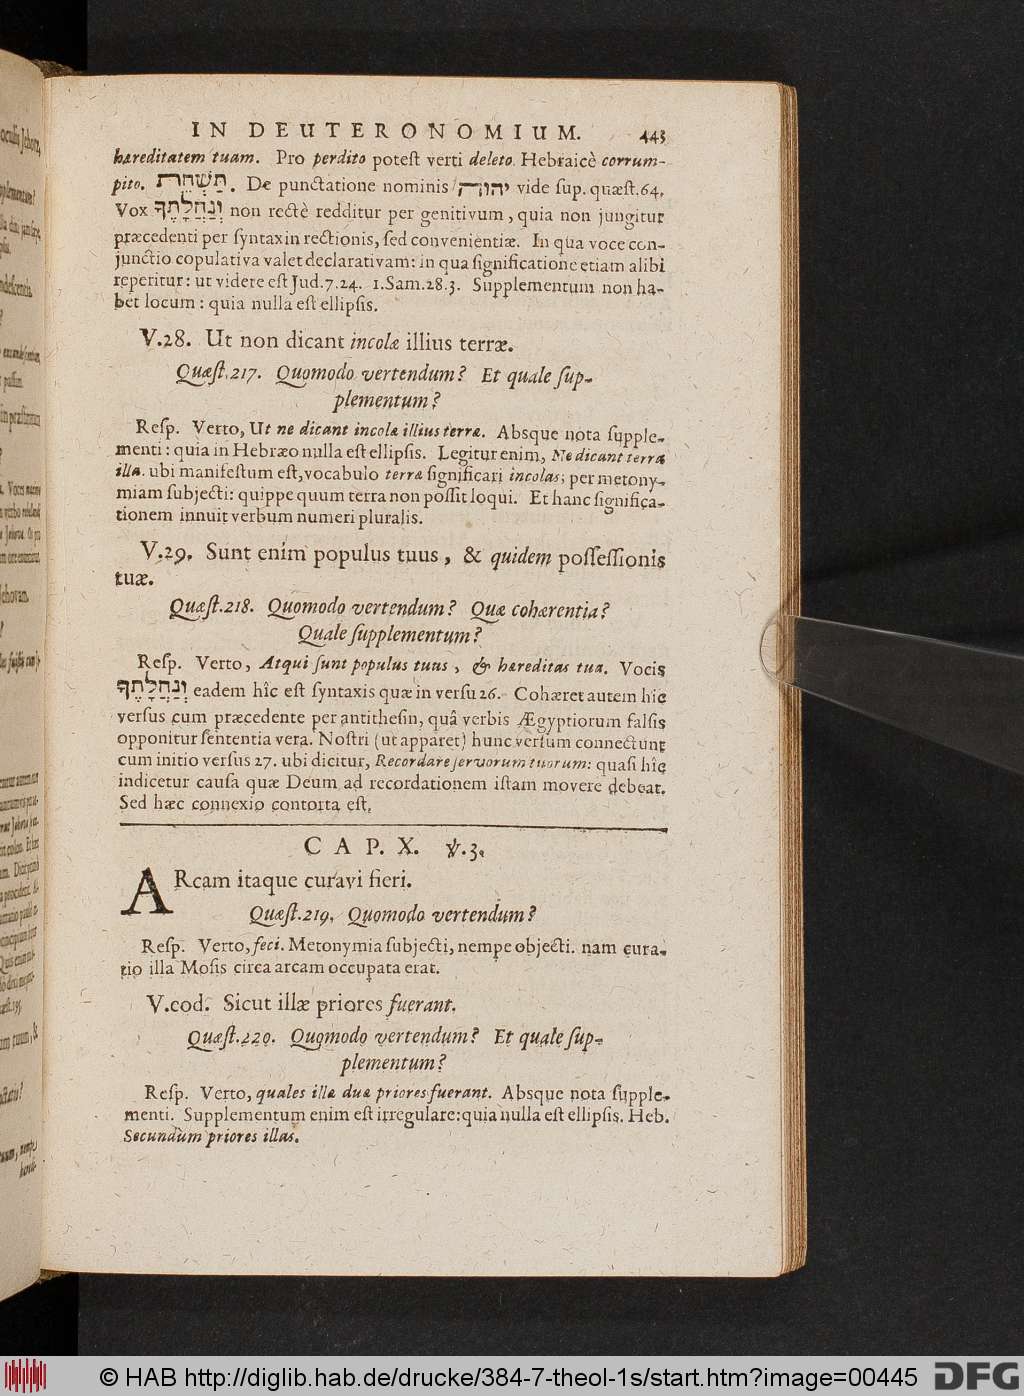 IN DEUTERONOMIUM. 443
hæreditatem tuam. Pro perdito potest verti deleto. Hebraicè corrum-
pito. תַּשְׁחֵת. De punctatione nominis יהוה vide sup. quæst.64.
Vox וְנַחֲלָתֶךָ non rectè redditur per genitivum, quia non jungitur
præcedenti per syntaxin rectionis, sed convenientiæ. In qua voce con-
junctio copulativa valet declarativam: in qua significatione etiam alibi
reperitur: ut videre est Jud.7.24. 1.Sam.28.3. Supplementum non ha-
bet locum: quia nulla est ellipsis.
V.28. Ut non dicant incolæ illius terræ.
Quæst.217. Quomodo vertendum? Et quale sup-
plementum?
Resp. Verto, Ut ne dicant incolæ illius terræ. Absque nota supple-
menti: quia in Hebræo nulla est ellipsis. Legitur enim, Ne dicant terra
illa. ubi manifestum est, vocabulo terræ significari incolas; per metony-
miam subjecti: quippe quum terra non possit loqui. Et hanc significa-
tionem innuit verbum numeri pluralis.
V.29. Sunt enim populus tuus, & quidem possessionis
tuæ.
Quæst.218. Quomodo vertendum? Quæ cohærentia?
Quale supplementum?
Resp. Verto, Atqui sunt populus tuus, & hæreditas tua. Vocis
וְנַחֲלָתֶךָ eadem hîc est syntaxis quæ in versu 26. Cohæret autem hic
versus cum præcedente per antithesin, quâ verbis Ægyptiorum falsis
opponitur sententia vera. Nostri (ut apparet) hunc versum connectunt
cum initio versus 27. ubi dicitur, Recordare servorum tuorum: quasi hîc
indicetur causa quæ Deum ad recordationem istam movere debeat.
Sed hæc connexio contorta est.
CAP. X. ℣.3.
ARcam itaque curavi fieri.
Quæst.219. Quomodo vertendum?
Resp. Verto, feci. Metonymia subjecti, nempe objecti. nam cura-
tio illa Mosis circa arcam occupata erat.
V.eod. Sicut illæ priores fuerant.
Quæst.220. Quomodo vertendum? Et quale sup-
plementum?
Resp. Verto, quales illæ duæ priores fuerant. Absque nota supple-
menti. Supplementum enim est irregulare: quia nulla est ellipsis. Heb.
Secundum priores illas.
© HAB http://diglib.hab.de/drucke/384-7-theol-1s/start.htm?image=00445
DFG